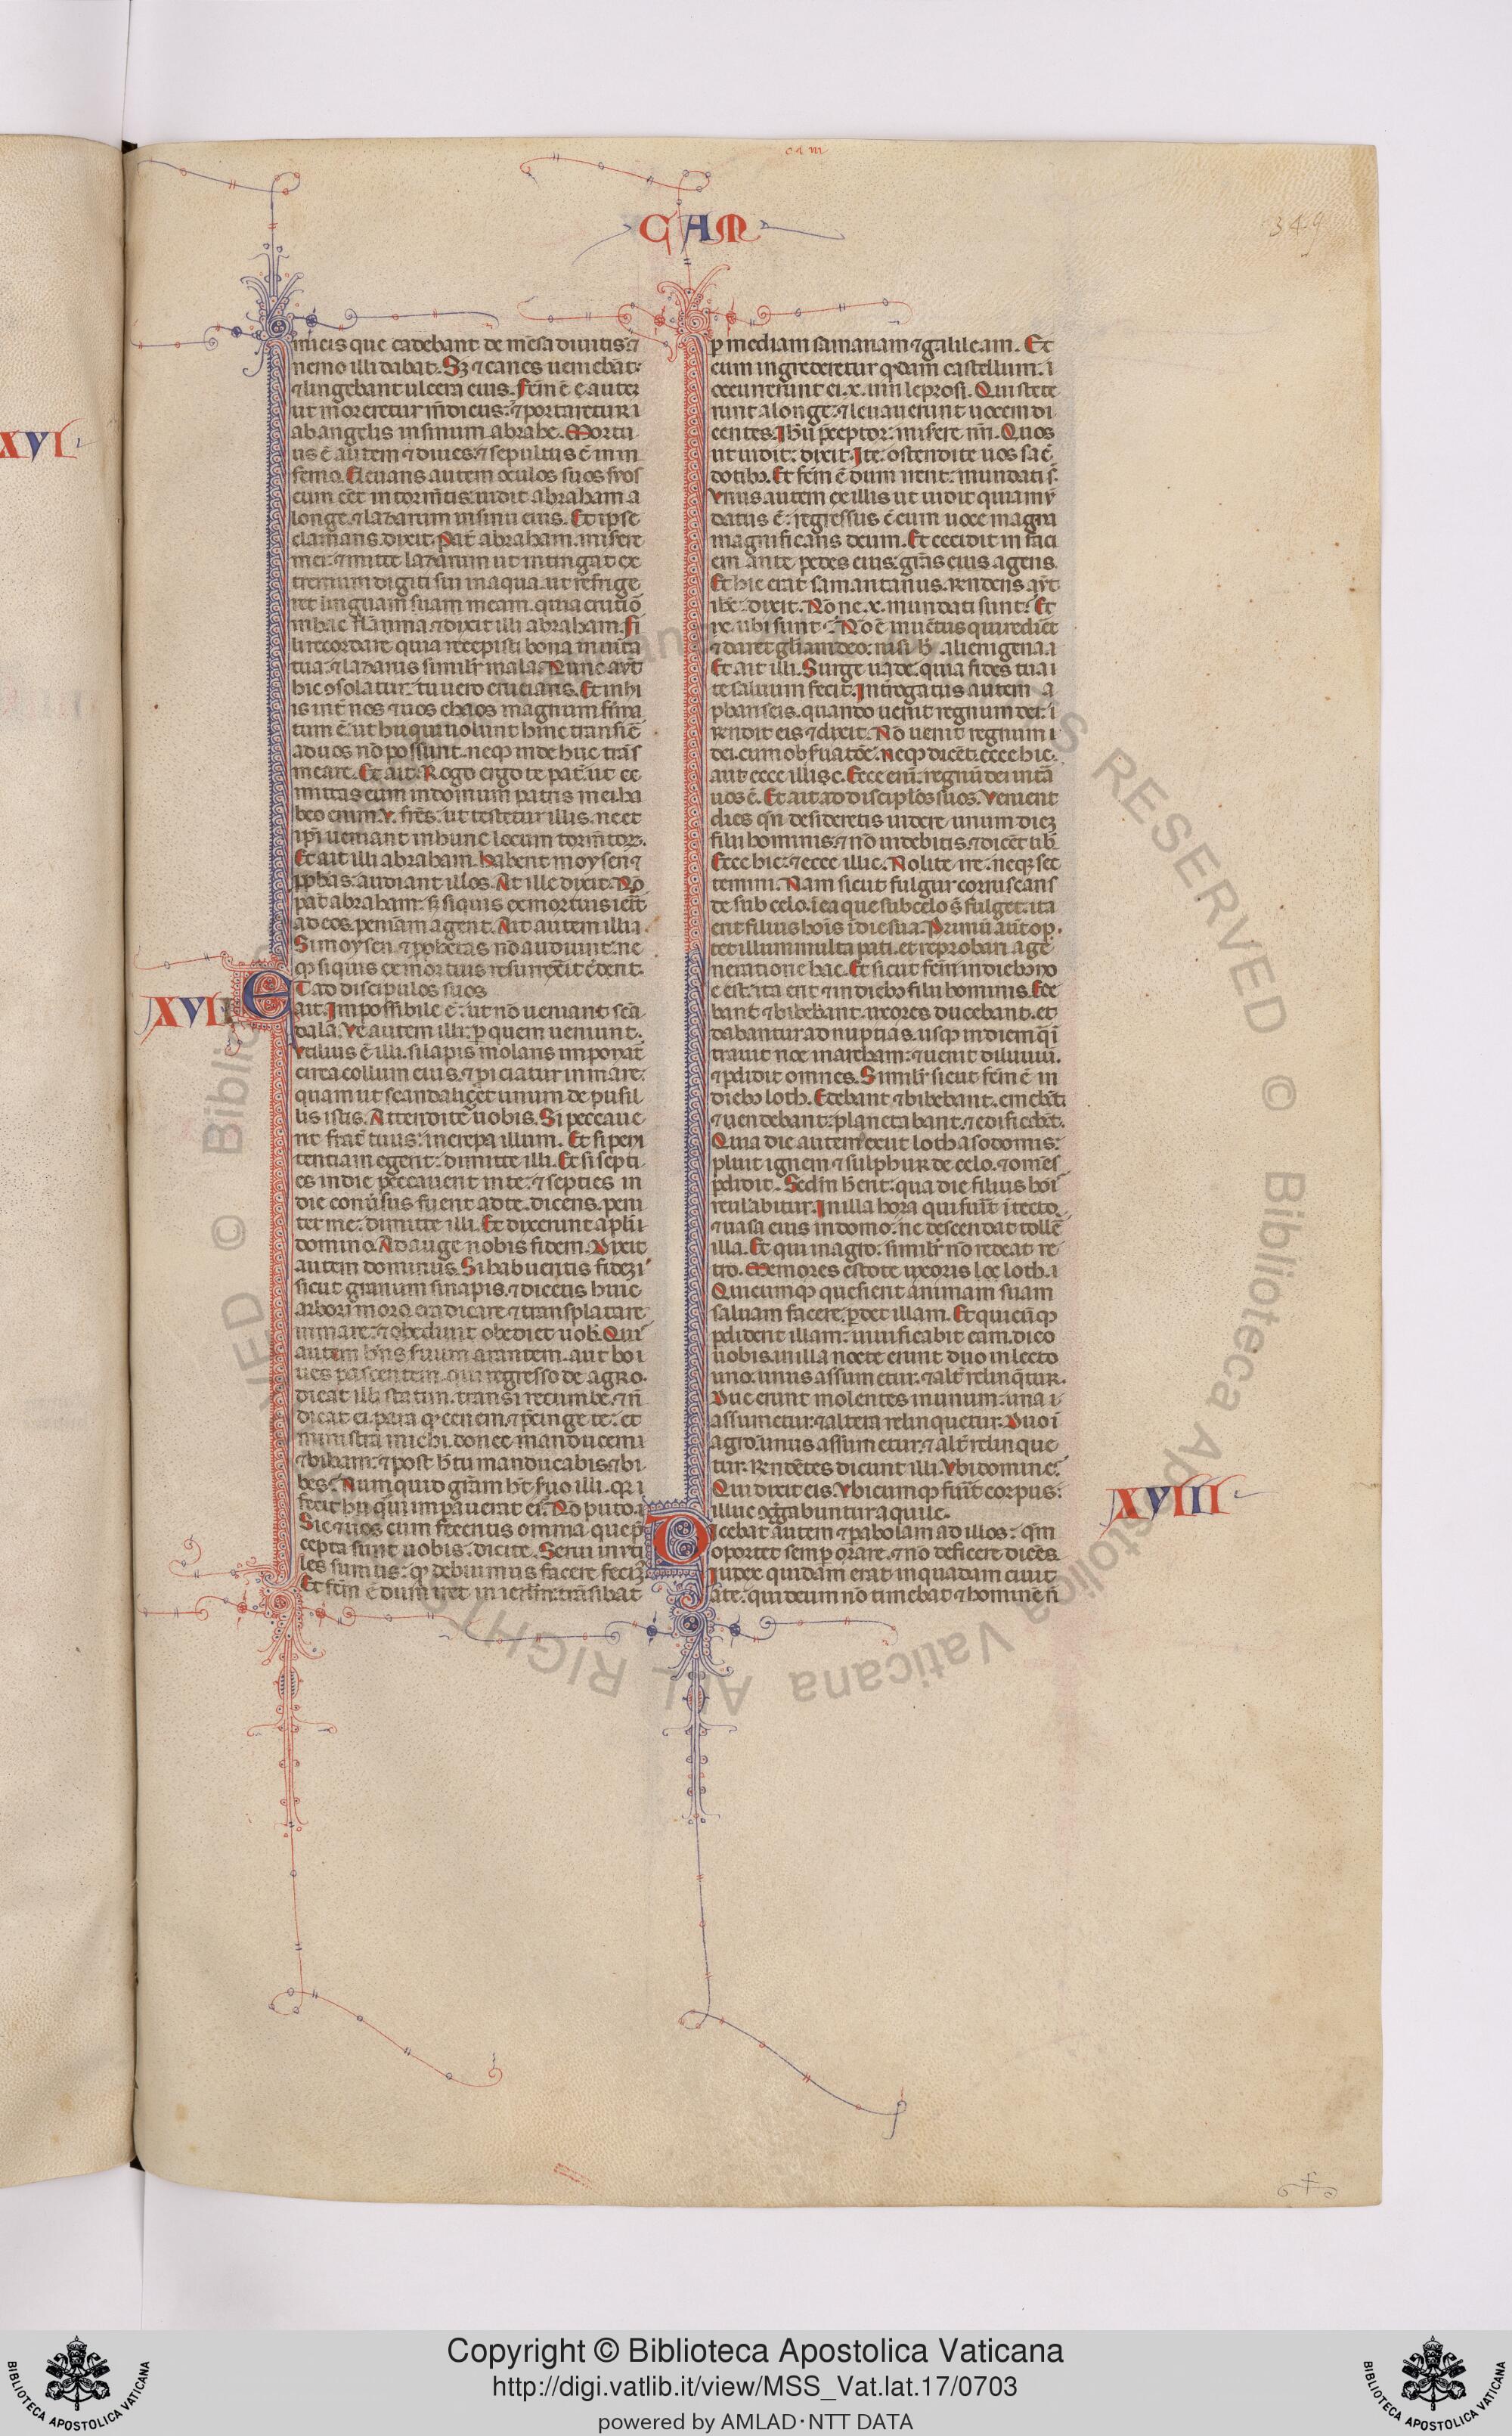 cam
CAM
349
XVI
micis que cadebant de mēsa diuitis: ⁊
nemo illi dabat. Sꝫ ⁊ canes ueniebāt:
⁊ lingebant ulcera eius. Fc̄m ē autez
ut moreretur m̄dicus: ⁊ portaretur i
ab angelis in sinum abrahe. Mortu
us ē autem ⁊ diues: ⁊ sepultus ē in in
ferno. Eleuans autem oculos suos
cum eēt in torm̄tis: uidit abraham a
longe. ⁊ lazarum in sinu eius. Et ipse
clamans dixit. Pat̄ abraham. miserere
mei: ⁊ mitte lazarum ut intingat ex
tremum digiti sui in aqua. ut refrige
ret linguam suam meam. quia crucio᷑
in hac flamma. ⁊ dixit illi abraham. Fi
li recordare quia recepisti bona in uita
tua: ⁊ lazarus similr̄ mala. Nunc aut̄
hic ɔsolatur. tu uero cruciaris. Et in hi
is int̄ nos ⁊ uos chaos magnum firma
tum ē. ut hii qui uolunt hinc transire
ad uos nō possunt. neqꝫ inde huc trās
meare. Et ait. Rogo ergo te pat̄ ut
mittas eum in domum patris mei. ha
beo enim .v. fr̄es. ut testetur illis. ne et
ip̄i ueniant in hunc locum torm̄torꝝ.
Et ait illi abraham. habent moysen ⁊
ꝓphas. audiant illos. At ille dixit. Nō
pat̄ abraham: sꝫ si quis ex mortuis ierit
ad eos. peniam agent. Ait autem illi.
Si moysen ⁊ ꝓphetas nō audiunt: ne
qꝫ si quis ex mortuis resurrex̄it c̄dent.
ET ad discipulos suos
XVII
ait. Impossibile ē: ut nō ueniant scā
dala. Ve autem illi: ꝑ quem ueniunt.
Vtilius ē illi. si lapis molaris imponat᷑
circa collum eius. ⁊ ꝓiciatur in mare.
quam ut scandaliçet unum de pusil
lis istis. Attendite uobis. Si peccaue
rit frat̄ tuus: increpa illum. Et si peni
tentiam egerit: dimitte illi. Et si septi
es in die peccauerit in te: ⁊ septies in
die conūsus fuerit ad te. dicens. peni
tet me: dimitte illi. Et dixerunt apl̄i
domino. Adauge nobis fidem. Dixit
autem dominus. Si habueritis fidez
sicut granum sinapis. ⁊ dicetis huic
arbori moro eradicare ⁊ transplātare
in mare: ⁊ obediet uob̄. Qui
autem h̄ns s̄uum arantem. aut bo
ues pascentem. qui regresso de agro.
dicat illi statim. transi recumbe. ⁊ n̄
dicat ei. para qꝫ cenem. ⁊ p̄cinge te. et
ministra michi. donec manducem
⁊ bibam: ⁊ post h̄ tu manducabis ⁊ bi
bes: Numquid gr̄am h̄t s̄uo illi. qꝛ
fecit que impauerat ei: Nō puto.
Sic ⁊ uos cum feceritis omnia que p̄
cepta sunt uobis. dicite. Serui inuti
les sumus: qꝫ debuimus facere fecimꝰ
Et fc̄m ē dum iret in ierl̄m: transibat
ꝑ mediam samariam ⁊ galileam. Et
cum ingrederetur qꝺam castellum:
occurrerunt ei .x. uiri leprosi. Qui stete
runt a longe: ⁊ leuauerunt uocem di
centes. Ih̄u p̄ceptor: miserere nr̄i. Quos
ut uidit: dixit. Ite: ostendite uos sac̄
dotibꝫ. Et fc̄m ē dum irent: mundati s̄.
Vnus autem ex illis ut uidit quia mū
datus ē: regressus ē cum uoce magna
magnificans deum. Et cecidit in faci
em ante pedes eius: gr̄as eius agens.
Et hic erat samaritanus. Rn̄dens aut̄
ih̄c: dixit. Nōne .x. mundati sunt: Et
.ix. ubi sunt: Nō ē inuētus qui rediret
⁊ daret gl̄iam deo: nisi h̄ alienigena.
Et ait illi. Surge uade. quia fides tua
te saluum fecit. Int̄rogatus autem a
phariseis. quando uenit regnum dei:
Rn̄dit eis ⁊ dixit. Nō uenit regnum
dei. cum obs̄uatōe. neqꝫ dicēt: ecce hic.
aut ecce illic. Ecce eni: regnū dei intra
uos ē. Et ait ad disciplōs suos. Venient
dies qn̄ desideretis uidere unum diez
filii hominis: ⁊ nō uidebitis. ⁊ dicēt uob̄
Ecce hic: ⁊ ecce illic. Nolite ire: neqꝫ sec
temini. Nam sicut fulgur coruscans
de sub celo. ī ea que sub celo s̄ fulget: ita
erit filius hoīs ī die sua. Primū aūt op̄
tet illum multa pati. et reprobari a ge
neratione hac. Et sicut fc̄m in diebꝫ no
e est. ita erit ⁊ in diebꝫ filii hominis. Ede
bant ⁊ bibebant. uxores ducebant. et
dabantur ad nuptias. usqꝫ in diem q̄ ī
trauit noe in archam: ⁊ uenit diluuiū.
⁊ ꝑdidit omnes. Similr̄ sicut fc̄m ē in
diebꝫ loth. Edebant ⁊ bibebant. emebāt
⁊ uendebant: plantabant. ⁊ edificabāt.
Qua die autem exiit loth a sodomis:
pluit ignem ⁊ sulphur de celo. ⁊ omēs
ꝑdidit. Sed̄m h̄ erit: qua die filius hoī
reuelabitur. In illa hora qui fuīt ī tecto.
⁊ uasa eius in domo: ne descendat tollē
illa. Et qui in agro: similr̄ nō redeat re
tro. Memores estote uxoris loth.
Quicumqꝫ quesierit animam suam
saluam facere. ꝑdet illam. Et quicūqꝫ
ꝑdiderit illam: uiuificabit eam. dico
uobis. in illa nocte erunt duo in lecto
uno: unus assumetur. ⁊ alt̄ relinq̄tur.
Due erunt molentes in unum: una
assumetur: ⁊ altera relinquetur. Duo ī
agro: unus assumetur: ⁊ alt̄ relinque
tur. Rn̄dētes dicunt illi. Vbi domine:
Qui dixit eis. Vbicumqꝫ fuīt corpus:
illuc ɔg̃gabuntur aquile.
XVIII
Dicebat autem ⁊ ꝑabolam ad illos: qm̄
oportet semꝑ orare. ⁊ nō deficere dicēs.
Iudex quidam erat in quadam ciuit
ate: qui deum nō timebat ⁊ hominē n̄
Copyright © Biblioteca Apostolica Vaticana
http://digi.vatlib.it/view/MSS_Vat.lat.17/0703
powered by AMLAD·NTT DATA
BIBLIOTECA APOSTOLICA VATICANA
BIBLIOTECA APOSTOLICA VATICANA